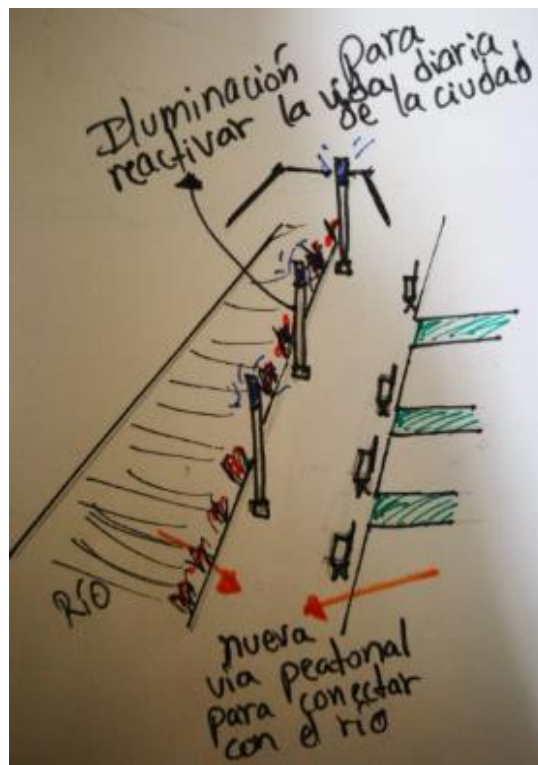 Iluminación Para
reactivar la vida diaria
de la ciudad
RÍO
nueva
vía peatonal
para conectar
con el río